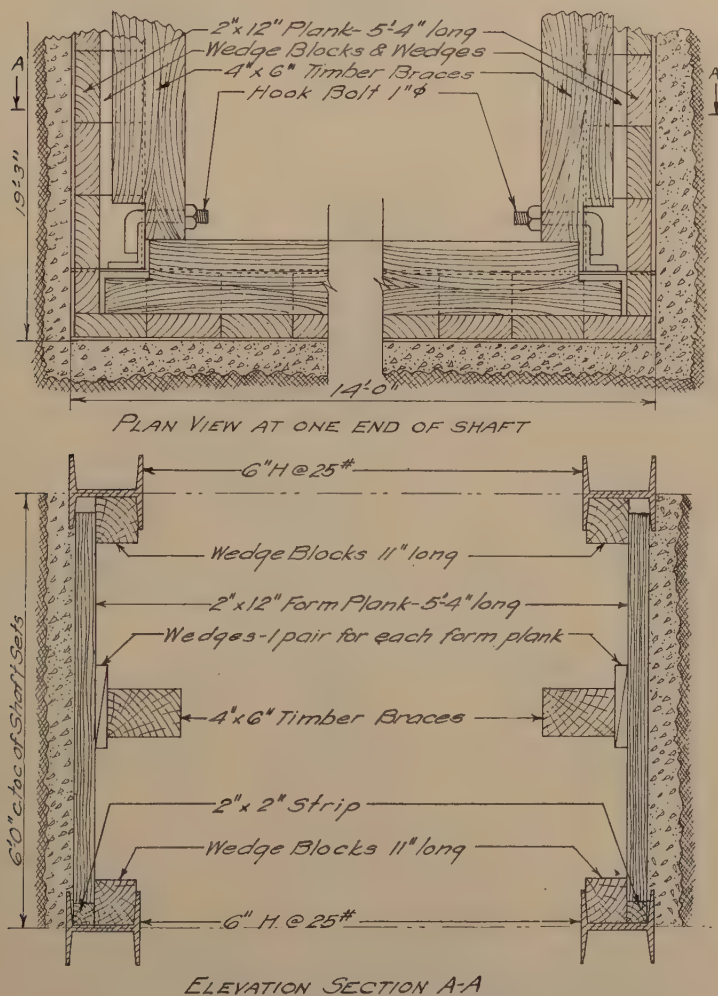 2"x12" Plank-5'-4" long
Wedge Blocks & Wedges
4"x6" Timber Braces
Hook Bolt 1"φ
A
A
19'-3"
14'-0"
PLAN VIEW AT ONE END OF SHAFT
6"H @ 25#
Wedge Blocks 11" long
2"x12" Form Plank-5'-4" long
Wedges-1 pair for each form plank
4"x6" Timber Braces
6'0" c. to c. of Shaft Sets
2"x2" Strip
Wedge Blocks 11" long
6" H @ 25#
ELEVATION SECTION A-A